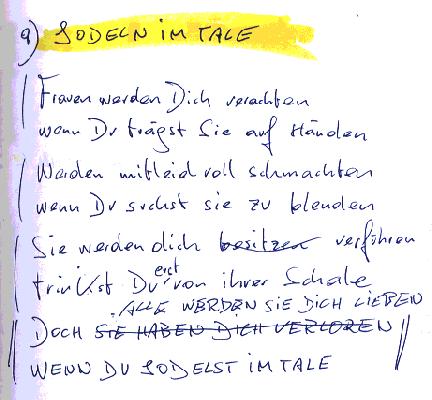 9) JODELN IM TALE
Frauen werden Dich verachten
wenn Du trägst Sie auf Händen
Werden mitleidvoll schmachten
wenn Du suchst sie zu blenden
Sie werden dich besitzen verführen
trinkst Du erst von ihrer Schale
ALLE WERDEN SIE DICH LIEBEN
DOCH SIE HABEN DICH VERLOREN
WENN DU JODELST IM TALE